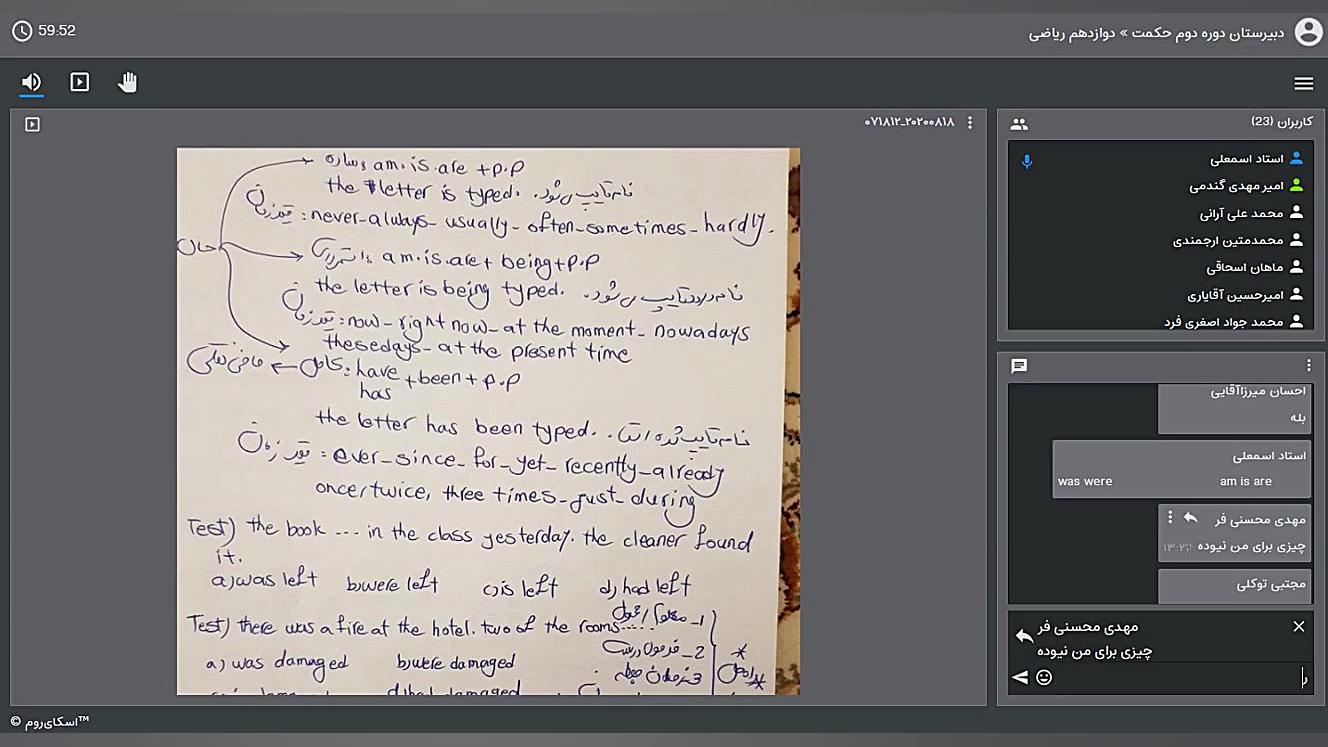 59:52
دبیرستان دوره دوم حکمت » دوازدهم ریاضی
۰۷۱۸۱۲_۲۰۲۰۰۸۱۸
ساده am.is.are+p.p
the letter is typed. نامه تایپ می‌شود.
قید زمان: never-always-usually-often-sometimes-hardly.
حال
استمراری: am.is.are+being+p.p
the letter is being typed. نامه دارد تایپ می‌شود.
قید زمان: now-right now-at the moment-nowadays
thesedays-at the present time
ماضی نقلی ← کامل: have
has
+been+p.p
the letter has been typed. نامه تایپ شده است.
قید زمان: ever-since-for-yet-recently-already
once,twice, three times-just-during
Test) the book ... in the class yesterday. the cleaner found
it.
a) was left b) were left c) is left d) had left
Test) there was a fire at the hotel. two of the rooms....
1- معلوم / مجهول
a) was damaged b) were damaged
2- فرمول درست
3- زمان جمله
مراحل
d) had damaged
کاربران (23)
استاد اسمعلی
امیر مهدی گندمی
محمد علی آرانی
محمدمتین ارجمندی
ماهان اسحاقی
امیرحسین آقایاری
محمد جواد اصغری فرد
احسان میرزاآقایی
بله
استاد اسمعلی
was were am is are
مهدی محسنی فر
چیزی برای من نیوده
مجتبی توکلی
مهدی محسنی فر
چیزی برای من نیوده
ر
© اسکای‌روم™